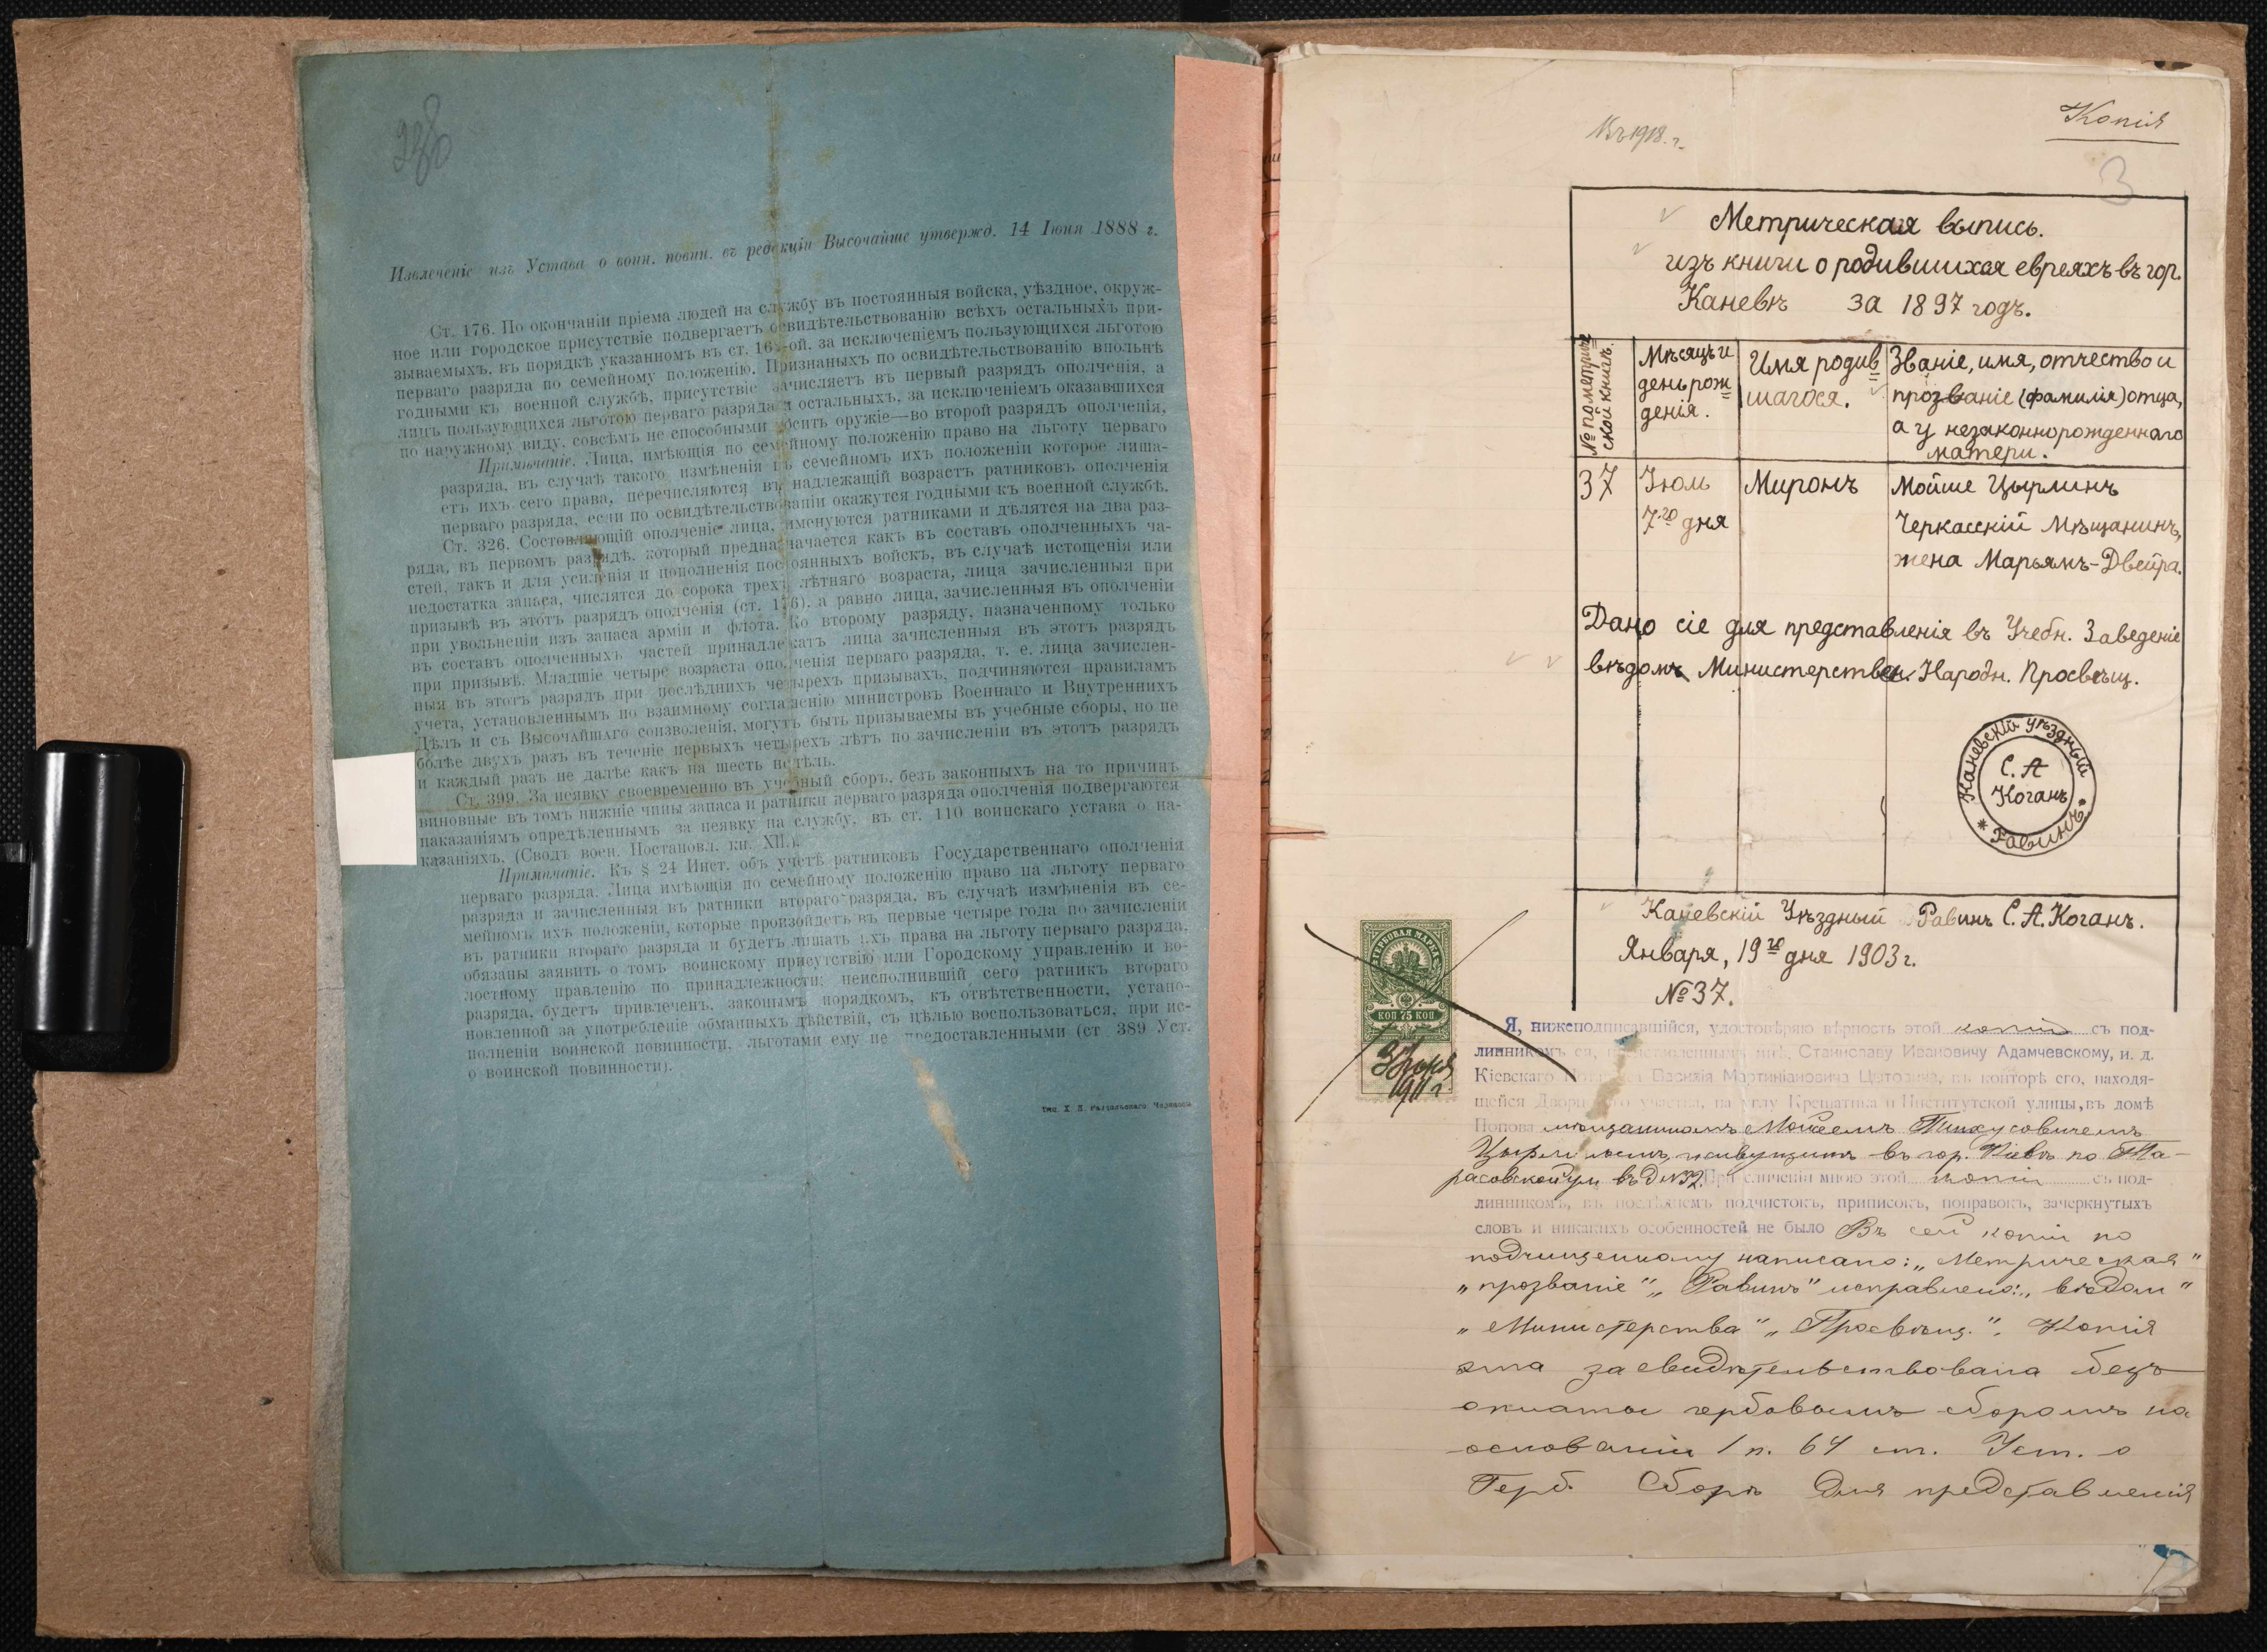 Извлеченіе изъ Устава о воин. повин. въ редакціи Высочайше утвержд. 14 Іюня 1888 г.
Ст. 176. По окончаніи пріема людей на службу въ постоянныя войска, уѣздное, окруж-
ное или городское присутствіе подвергаетъ освидѣтельствованію всѣхъ остальныхъ при-
зываемыхъ, въ порядкѣ указанномъ въ ст. за исключеніемъ пользующихся льготою
перваго разряда по семейному положенію. Признаныхъ по освидѣтельствованію вполнѣ
годными къ военной службѣ, присутствіе зачисляетъ въ первый разрядъ ополченія, а
лицъ пользующихся льготою перваго разряда и остальныхъ, за исключеніемъ оказавшихся
по наружному виду, совсѣмъ не способными носить оружіе—во второй разрядъ ополченія.
Примѣчаніе. Лица, имѣющія по семейному положенію право на льготу перваго
разряда, въ случаѣ такого измѣненія въ семейномъ ихъ положеніи которое лиша-
етъ ихъ сего права, перечисляются въ надлежащій возрастъ ратниковъ ополченія
перваго разряда, если по освидѣтельствованіи окажутся годными къ военной службѣ.
Ст. 326. Состовляющій ополченіе лица, именуются ратниками и дѣлятся на два раз-
ряда, въ первомъ разрядѣ, который предназначается какъ въ составъ ополченныхъ ча-
стей, такъ и для усиленія и пополненія постоянныхъ войскъ, въ случаѣ истощенія или
недостатка запаса, числятся до сорока трехъ лѣтняго возраста, лица зачисленныя при
призывѣ въ этотъ разрядъ ополченія (ст. 176), а равно лица, зачисленныя въ ополченіи
при увольненіи изъ запаса арміи и флота. Ко второму разряду, назначенному только
въ составъ ополченныхъ частей принадлежатъ лица зачисленныя въ этотъ разрядъ
при призывѣ. Младшіе четыре возраста ополченія перваго разряда, т. е. лица зачислен-
ныя въ этотъ разрядъ при послѣднихъ четырехъ призывахъ, подчиняются правиламъ
учета, установленнымъ по взаимному соглашенію министровъ Военнаго и Внутреннихъ
Дѣлъ и съ Высочайшаго соизволенія, могутъ быть призываемы въ учебные сборы, но не
болѣе двухъ разъ въ теченіе первыхъ четырехъ лѣтъ по зачисленіи въ этотъ разрядъ
и каждый разъ не далѣе какъ на шесть недѣль.
Ст. 399. За неявку своевременно въ учебный сборъ, безъ законныхъ на то причинъ
виновные въ томъ нижніе чины запаса и ратники перваго разряда ополченія подвергаются
наказаніямъ опредѣленнымъ за неявку на службу, въ ст. 110 воинскаго устава о на-
казаніяхъ. (Сводъ воен. Постановл. кн. XII.).
Примѣчаніе. Къ § 24 Инст. объ учетѣ ратниковъ Государственнаго ополченія
перваго разряда. Лица имѣющія по семейному положенію право на льготу перваго
разряда и зачисленныя въ ратники втораго разряда, въ случаѣ измѣненія въ се-
мейномъ ихъ положеніи, которые произойдетъ въ первые четыре года по зачисленіи
въ ратники втораго разряда и будетъ лишать ихъ права на льготу перваго разряда,
обязаны заявить о томъ воинскому присутствію или Городскому управленію и во-
лостному правленію по принадлежности; неисполнившій сего ратникъ втораго
разряда, будетъ привлеченъ, законымъ порядкомъ, къ отвѣтственности, устано-
вленной за употребленіе обманныхъ дѣйствій, съ цѣлью воспользоваться, при ис-
полненіи воинской повинности, льготами ему не предоставленными (ст 389 Уст.
о воинской повинности).
Въ 1918. г.
Копія
3
Метрическая выпись.
изъ книги о родившихся евреяхъ въ гор.
Каневѣ за 1897 годъ.
№ по метриче
ской книгѣ.
Мѣсяцъ и
день рож
денія.
Имя родив
шагося.
Званіе, имя, отчество и
прозваніе (фамилія) отца,
а у незаконнорожденнаго
матери.
37
Іюль
7го дня
Миронъ
Мойше Цырлинъ
Черкасскій мѣщанинъ,
жена Марьямъ-Двейра.
Дано сіе для представленія въ Учебн. Заведеніе
вѣдомъ Министерствен. Народн. Просвѣщ.
Каневскій уѣздный
С. А
Коганъ
* Равинъ. *
Каневскій Уѣздный Равинъ С. А. Коганъ.
Января, 19го дня 1903 г.
№ 37.
ГЕРБОВАЯ МАРКА
КОП 75 КОП
3 Іюня
1911 г
Я, нижеподписавшійся, удостовѣряю вѣрность этой копіи съ под-
линникомъ ея, представленнымъ мнѣ, Станиславу Ивановичу Адамчевскому, и. д.
Кіевскаго Нотаріуса Василія Мартиніановича Цытовича, въ конторѣ его, находя-
щейся Дворцоваго участка, на углу Крещатика и Институтской улицы, въ домѣ
Попова мѣщаниномъ Моисеемъ Пинхусовичемъ
Цырлинымъ, живущимъ въ гор. Кіевѣ по Та-
расовской ул въ д № 32. При сличеніи мною этой копіи съ под-
линникомъ, въ послѣднемъ подчистокъ, приписокъ, поправокъ, зачеркнутыхъ
словъ и никакихъ особенностей не было Въ сей копіи по
подчищенному написано: „Метрическая"
„прозваніе" „Равинъ" исправлено: „вѣдом"
„Министерства" „Просвѣщ.". Копія
эта засвидѣтельствована безъ
оплаты гербовымъ сборомъ на
основаніи 1 п. 64 ст. Уст. о
Герб. Сборѣ для представленія